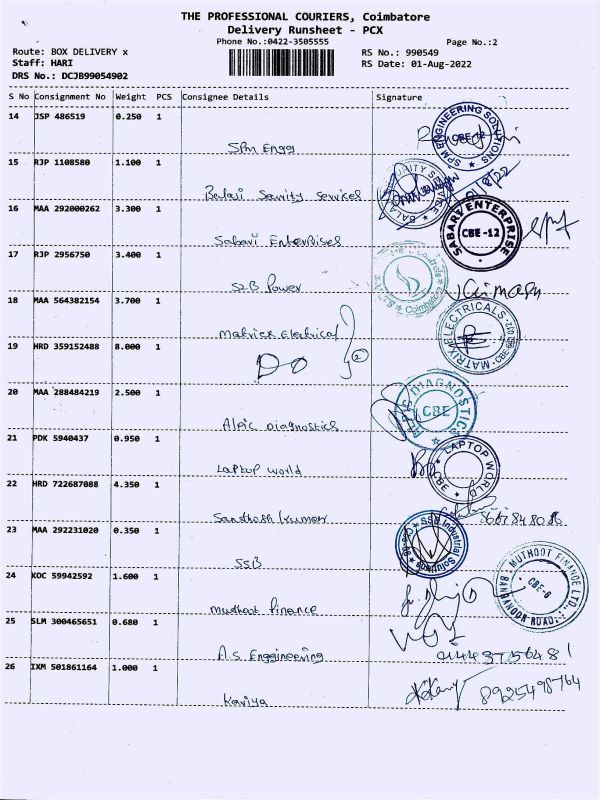 THE PROFESSIONAL COURIERS, Coimbatore
Delivery Runsheet - PCX
Phone No.:0422-3505555
Page No.:2
Route: BOX DELIVERY x
RS No.: 990549
Staff: HARI
RS Date: 01-Aug-2022
DRS No.: DCJB99054902
S No Consignment No Weight PCS Consignee Details Signature
14 JSP 486519 0.250 1
SPM Engg
SPM ENGINEERING SOLUTIONS CBE-12
15 RJP 1108580 1.100 1
Balaji Security Services
16 MAA 292000262 3.300 1
Sabari Enterprises
SABARI ENTERPRISE CBE -12
17 RJP 2956750 3.400 1
S2B Power
Controls Coimbatore
18 MAA 564382154 3.700 1
Matrix Electrical
MATRIX ELECTRICALS
19 HRD 359152488 8.000 1
Do 2
20 MAA 288484219 2.500 1
Alpic Diagnostics
DIAGNOSTICS CBE
21 PDK 5940437 0.950 1
Laptop world
LAPTOP WORLD CBE
22 HRD 722687088 4.350 1
Santhosh kumar
23 MAA 292231020 0.350 1
SSB
SSB Industrial Solutions
24 KOC 59942592 1.600 1
Muthoot Finance
MUTHOOT FINANCE LTD., CBE-6 ROAD
25 SLM 300465651 0.680 1
A.S. Enggineering
26 IXM 501861164 1.000 1
Kaviya
8925498764